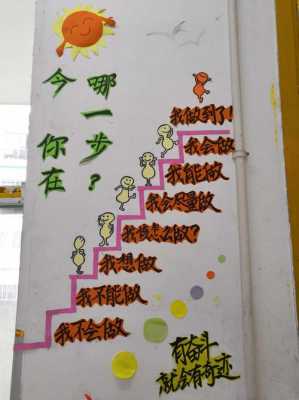 今你在
哪一步？
我做到了！
我会做
我能做
我会尽量做
我该怎么做？
我想做
我不能做
我不会做
有奋斗
就会有奇迹